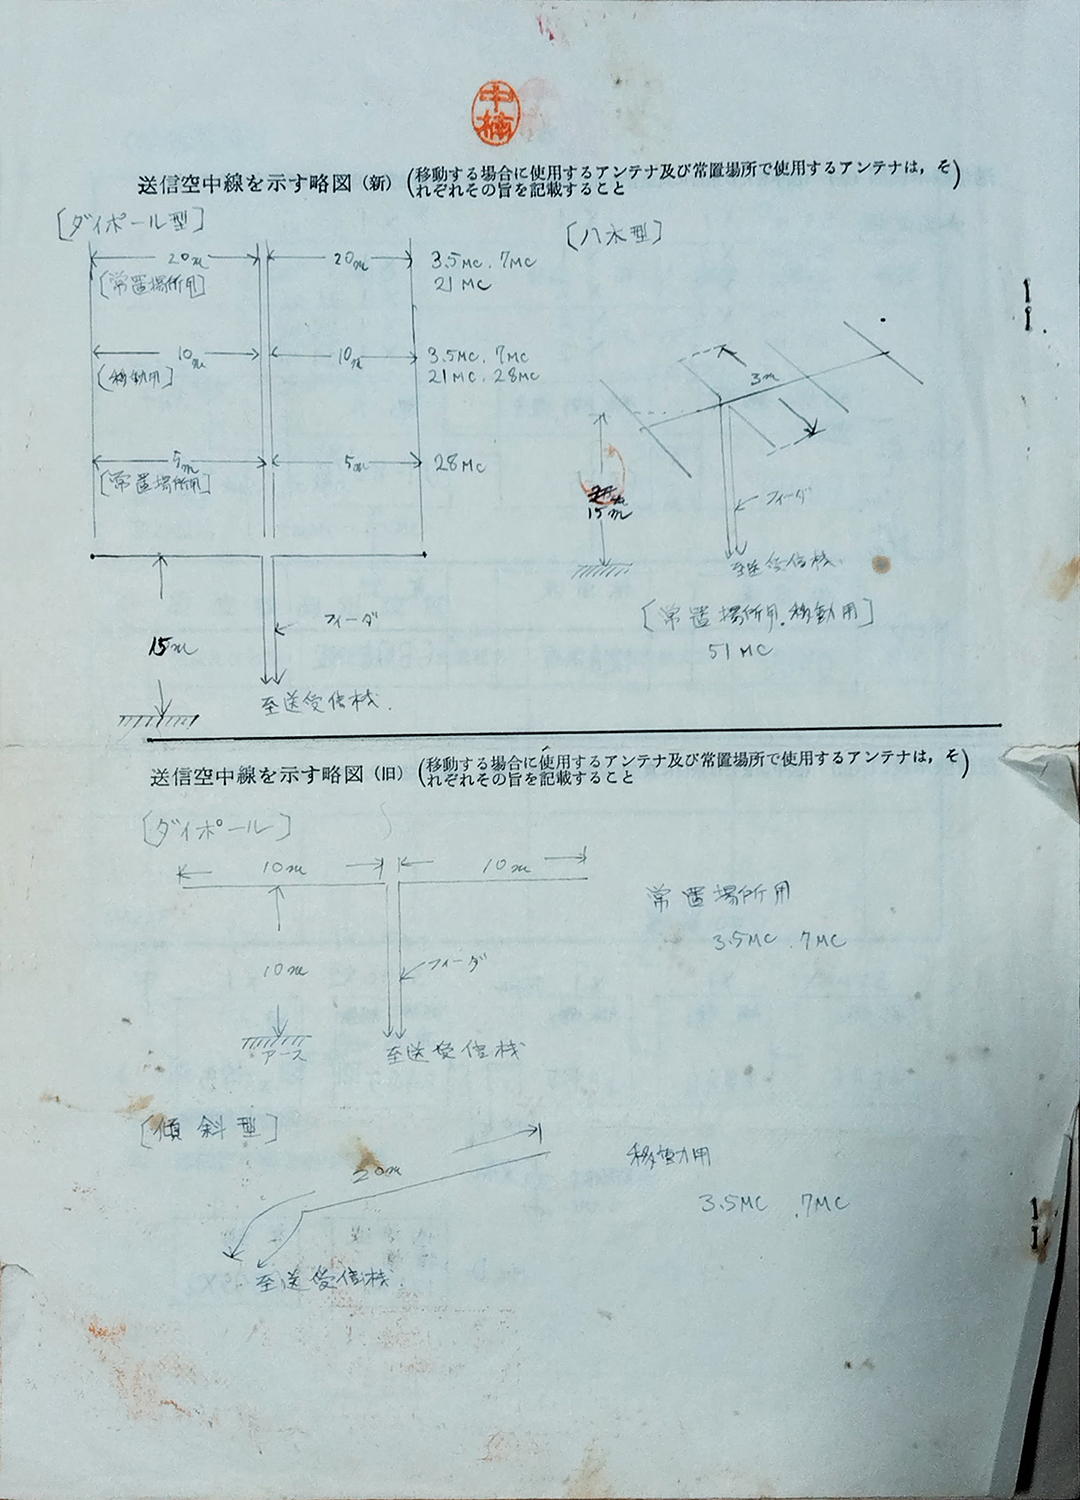 中
楠
送信空中線を示す略図（新）（移動する場合に使用するアンテナ及び常置場所で使用するアンテナは，そ
れぞれその旨を記載すること）
[ダイポール型]
20m 20m 3.5MC. 7MC
[常置場所用] 21MC
10m 10m 3.5MC. 7MC
[移動用] 21MC. 28MC
5m 5m 28MC
[常置場所用]
15m
フィーダ
至送受信桟.
[八木型]
3m
15m
フィーダ
至送受信桟.
[常置場所用.移動用]
51MC
送信空中線を示す略図（旧）（移動する場合に使用するアンテナ及び常置場所で使用するアンテナは，そ
れぞれその旨を記載すること）
[ダイポール]
10m 10m
常置場所用
3.5MC .7MC
10m
フィーダ
アース
至送受信桟
[傾斜型]
20m
移動用
3.5MC .7MC
至送受信桟.